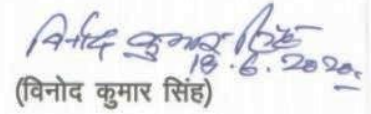 विनोद कुमार सिंह
18.6.2020
(विनोद कुमार सिंह)